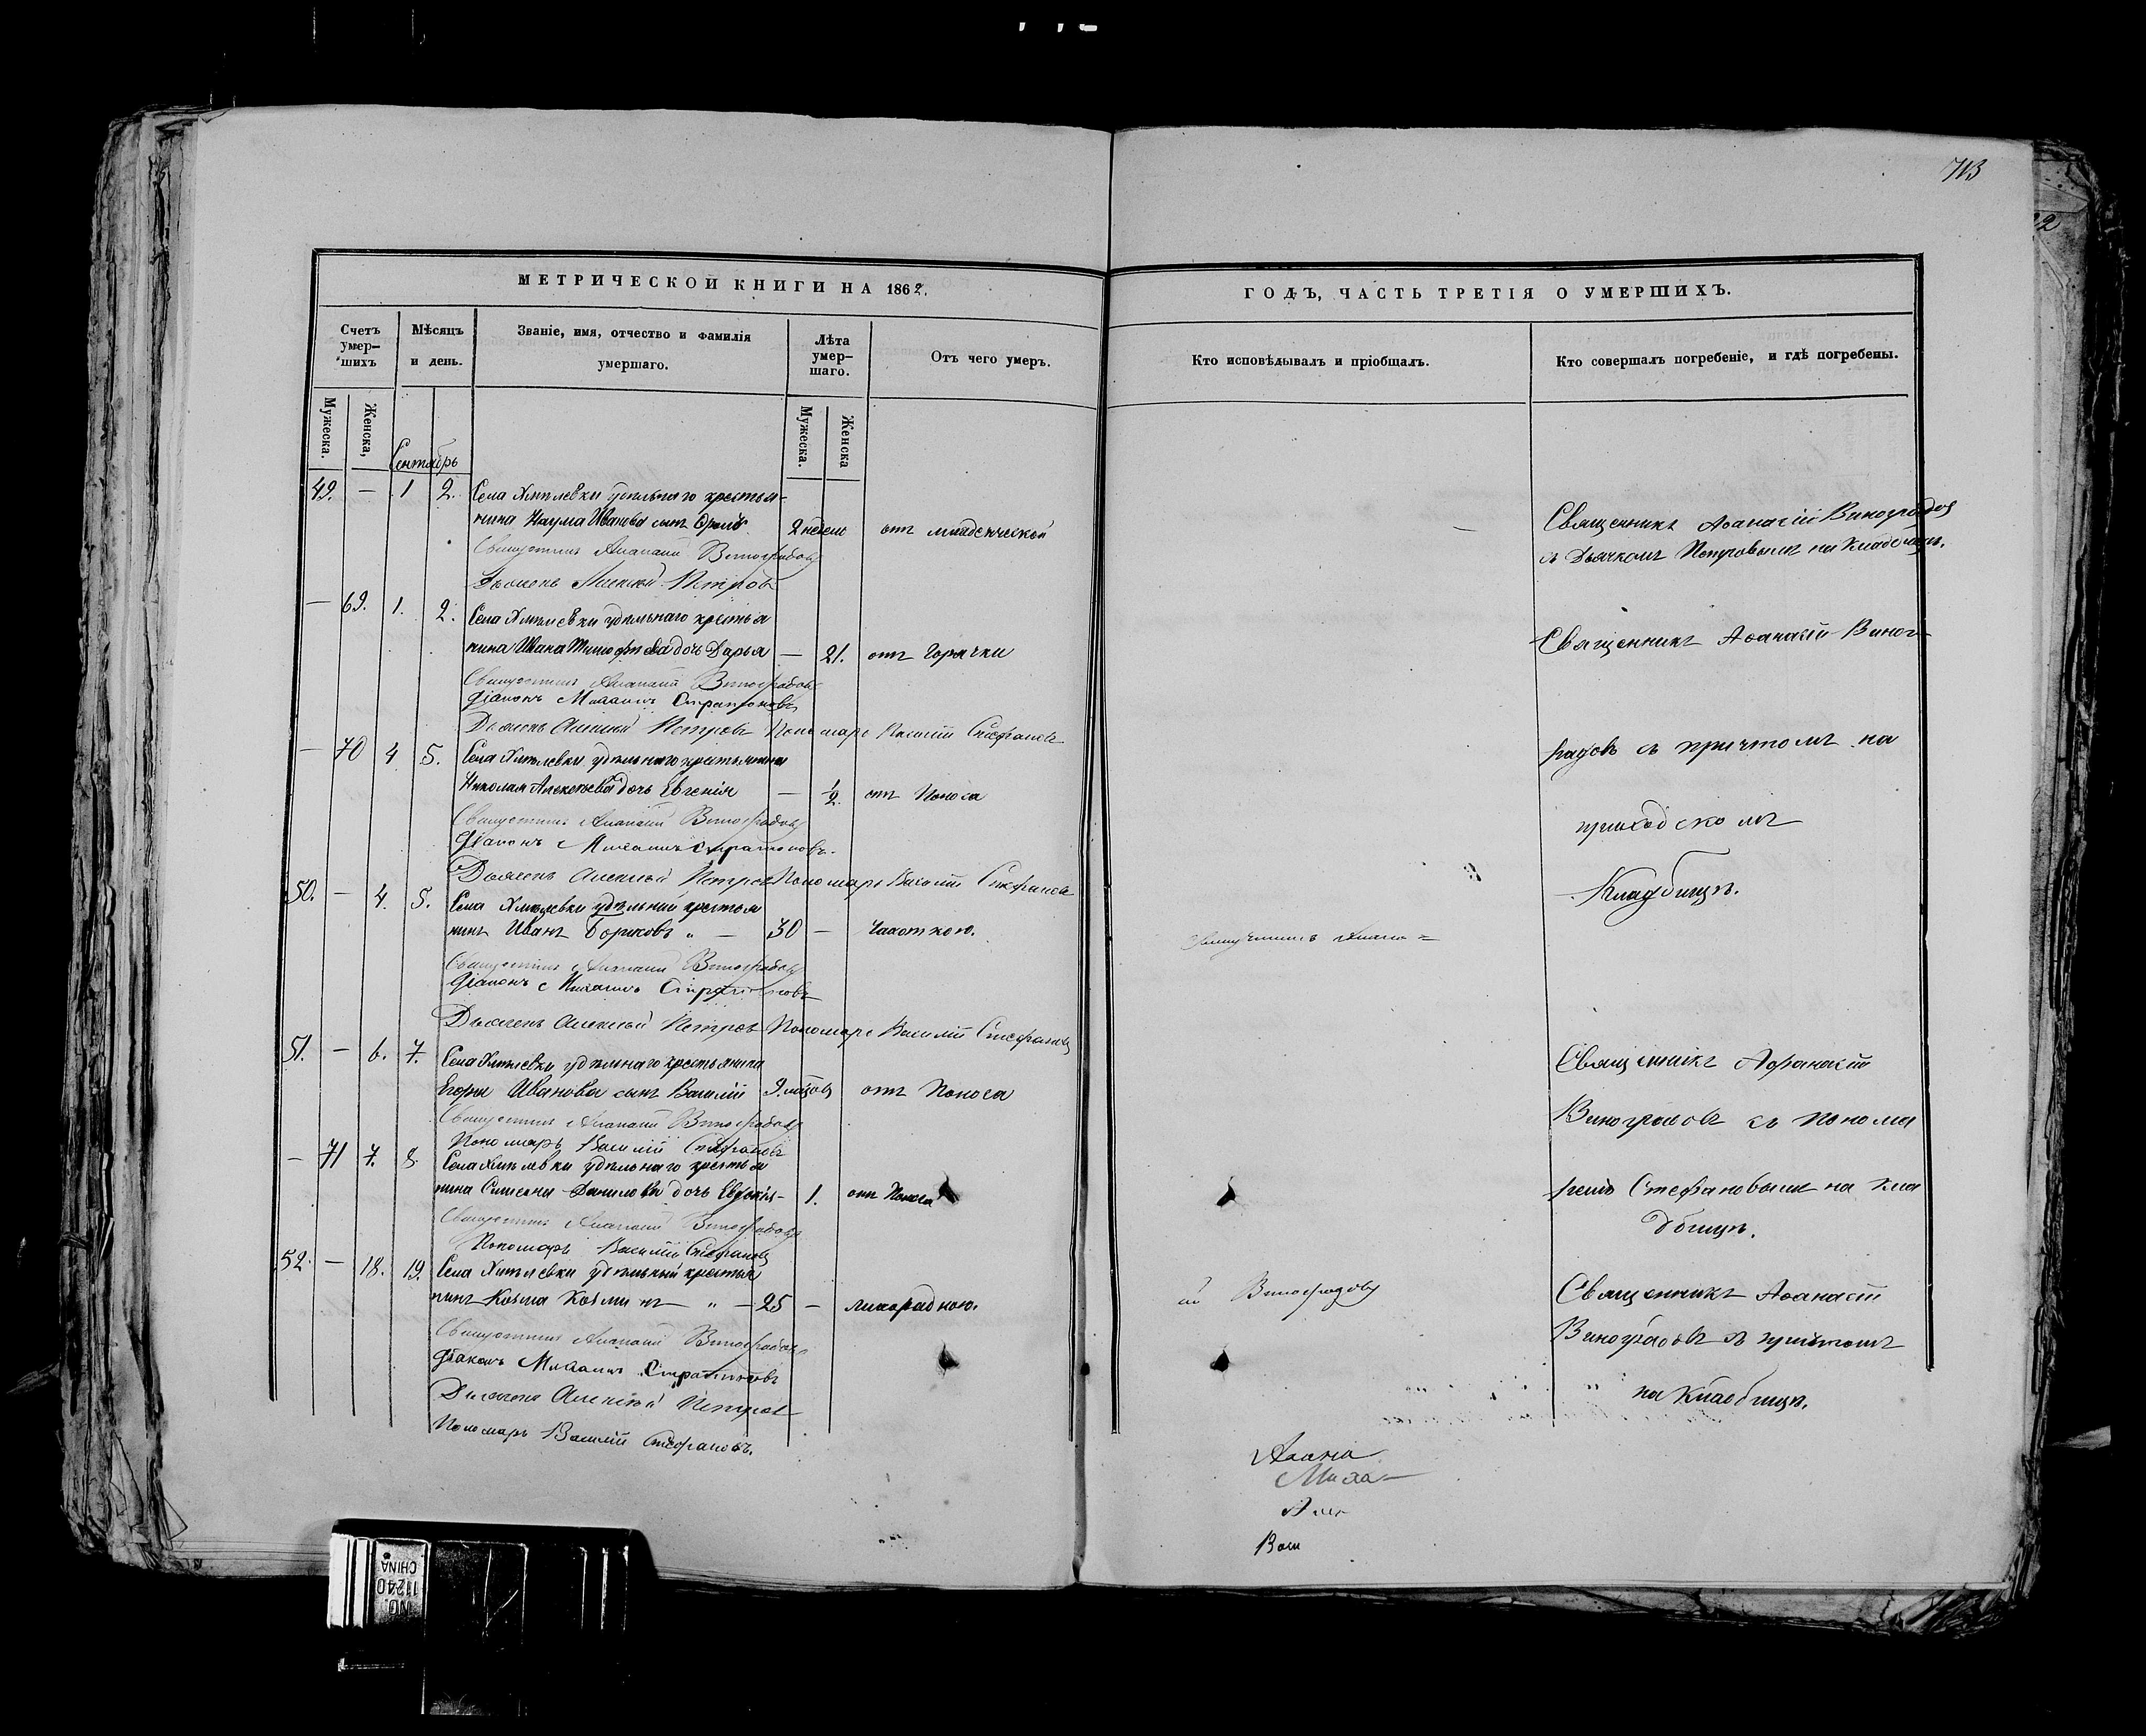 713
МЕТРИЧЕСКОЙ КНИГИ НА 1862.
ГОДЪ, ЧАСТЬ ТРЕТІЯ О УМЕРШИХЪ.
Счетъ умер-шихъ
Мѣсяцъ и день.
Званіе, имя, отчество и фамилія умершаго.
Лѣта умер-шаго.
Отъ чего умеръ.
Кто исповѣдывалъ и пріобщалъ.
Кто совершалъ погребеніе, и гдѣ погребены.
Мужеска.
Женска,
Мужеска.
Женска
Сентябрь
49. — 1 2. Села Хмѣлевки удѣльнаго крестья-
нина Наума Иванова сынъ 2 недель отъ младенческой
Священникъ Аѳанасій Виноградовъ
съ Дьячкомъ Петровымъ на Кладбищѣ.
Священникъ Аѳанасій Виноградовъ
Дьячекъ Алексѣй Петровъ
— 69. 1. 2. Села Хмѣлевки удѣльнаго крестья
нина Ивана Тимофѣева дочь Дарья — 21. отъ Горячки
Священникъ Аѳанасій Виног-
Священникъ Аѳанасій Виноградовъ
Діаконъ Михаилъ Стратоновъ
Дьячекъ Алексѣй Петровъ Пономарь Василій Стефановъ
— 70 4 5. Села Хмѣлевки удѣльнаго крестьянина
Николая Алексѣева дочь Евгенія — 1/2. отъ Поноса
радовъ съ причтомъ на
приходскомъ
Кладбищѣ.
Священникъ Аѳанасій Виноградовъ
Діаконъ Михаилъ Стратоновъ.
Дьячекъ Алексѣй Петровъ Пономарь Василій Стефановъ
50. — 4. 5. Села Хмѣлевки удѣльный крестья
нинъ Иванъ Борисовъ „ — 30 — Чахоткою.
Священникъ Аѳана=
Священникъ Аѳанасій Виноградовъ
Діаконъ Михаилъ Стратоновъ
Дьячекъ Алексѣй Петровъ Пономарь Василій Стефановъ
51. — 6. 7. Села Хмѣлевки удѣльнаго крестьянина
Егора Иванова сынъ Василій отъ Поноса
Священникъ Афанасій
Виноградовъ съ Понома
Священникъ Аѳанасій Виноградовъ
Пономарь Василій Стефановъ
— 71 7. 8. Села Хмѣлевки удѣльнаго крестья
нина Симеона Данилова дочь Евдокія — 1. отъ Поноса
ремъ Стефановымъ на Кла
дбищѣ.
Священникъ Аѳанасій Виноградовъ
Пономарь Василій Стефановъ
52. — 18. 19. Села Хмѣлевки удѣльный крестья
нинъ Козма Козминъ — „ — 25 — лихорадкою.
ій Виноградовъ
Священникъ Аѳанасій
Виноградовъ съ причтомъ
на Кладбищѣ.
Священникъ Аѳанасій Виноградовъ
Діаконъ Михаилъ Стратоновъ
Дьячекъ Алексѣй Петровъ
Пономарь Василій Стефановъ.
Аѳана
Миха-
Але
Васи
NO. 11240
CHINA